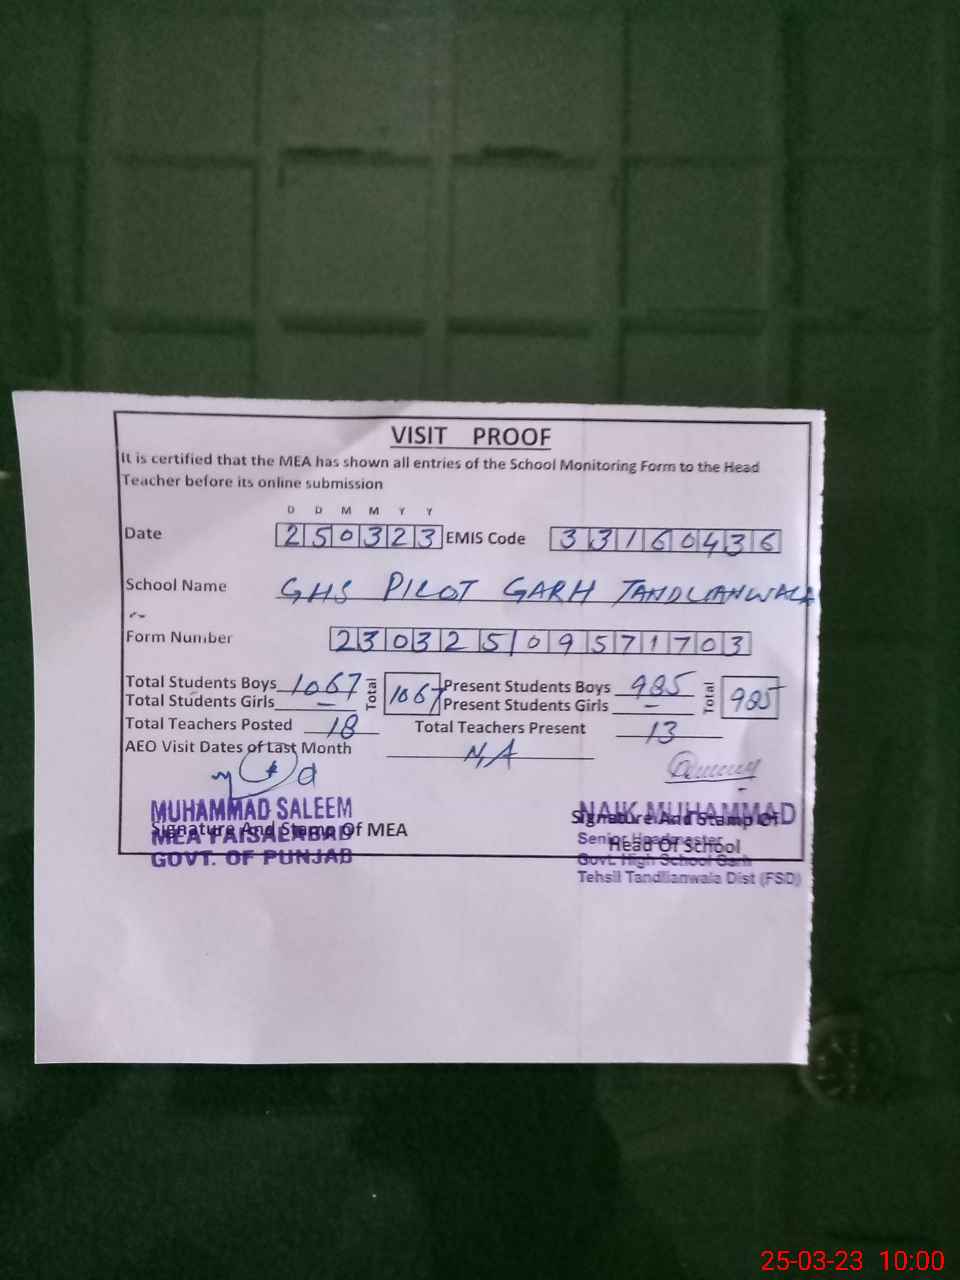 VISIT PROOF
It is certified that the MEA has shown all entries of the School Monitoring Form to the Head
Teacher before its online submission
D D M M Y Y
Date 250323 EMIS Code 33160436
School Name GHS PILOT GARH TANDLIANWALA
Form Number 230325109571703
Total Students Boys 1067 Total 1067 Present Students Boys 985 Total 985
Total Students Girls — Present Students Girls —
Total Teachers Posted 18 Total Teachers Present 13
AEO Visit Dates of Last Month N/A
MUHAMMAD SALEEM NAIK MUHAMMAD
Signature And Stamp Of MEA Signature And Stamp Of
MEA FAISALABAD Senior Headmaster
Head Of School
GOVT. OF PUNJAB Govt. High School Garh
Tehsil Tandlianwala Dist (FSD)
25-03-23 10:00